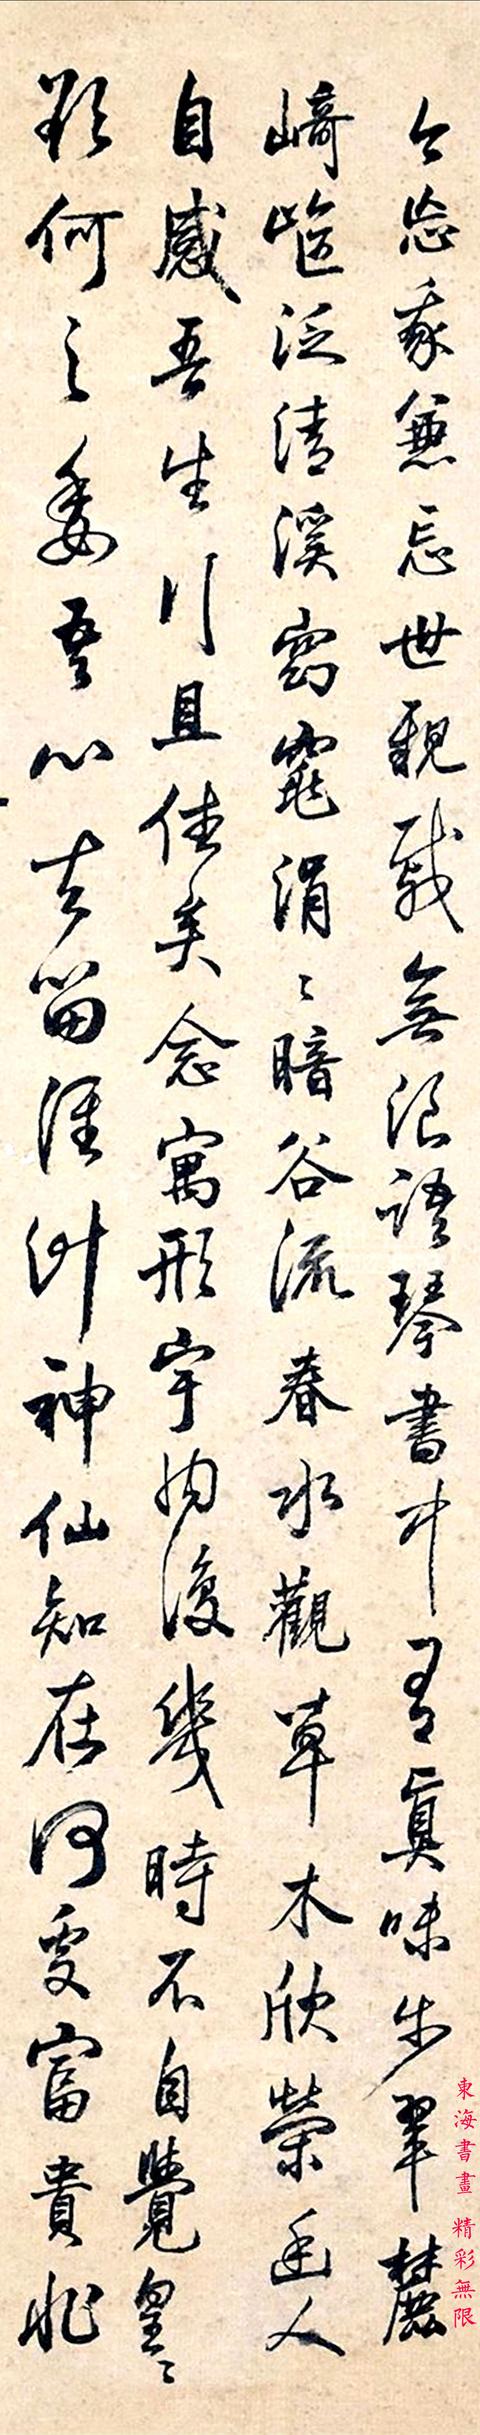 今忘我兼忘世親戚無浪語琴書中有真味步翠麓
崎嶇泛清溪窈窕涓〻暗谷流春水觀草木欣榮幽人
自感吾生行且矣念寓形宇內復幾時不自覺皇〻
欲何之委吾心去留誰計神仙知在何處富貴非
東海書畫 精彩無限